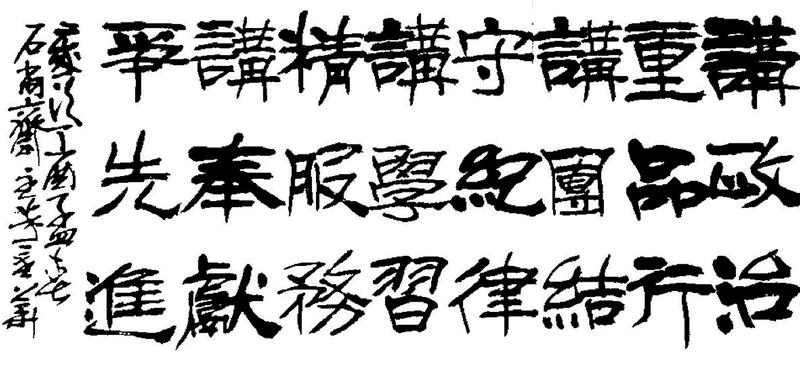 講政治
重品行
講團結
守紀律
講學習
精服務
講奉獻
爭先進